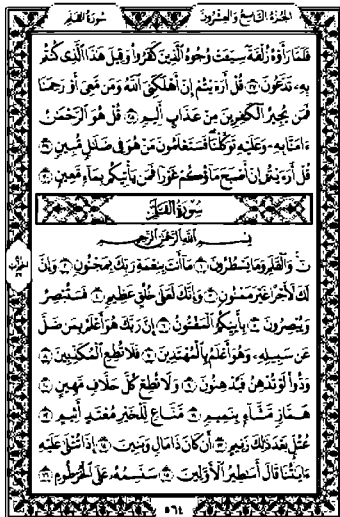 الجزء التاسع والعشرون سورة القلم
فلما رأوه زلفة سيئت وجوه الذين كفروا وقيل هذا الذي كنتم
به تدعون ٢٧ قل أرءيتم إن أهلكني الله ومن معي أو رحمنا
فمن يجير الكافرين من عذاب أليم ٢٨ قل هو الرحمن
ءامنا به وعليه توكلنا فستعلمون من هو في ضلال مبين ٢٩
قل أرءيتم إن أصبح ماؤكم غورا فمن يأتيكم بماء معين ٣٠
سورة القلم
بسم الله الرحمن الرحيم
ن والقلم وما يسطرون ١ ما أنت بنعمة ربك بمجنون ٢ وإن
لك لأجرا غير ممنون ٣ وإنك لعلى خلق عظيم ٤ فستبصر
ويبصرون ٥ بأييكم المفتون ٦ إن ربك هو أعلم بمن ضل
عن سبيله وهو أعلم بالمهتدين ٧ فلا تطع المكذبين ٨
ودوا لو تدهن فيدهنون ٩ ولا تطع كل حلاف مهين ١٠
هماز مشاء بنميم ١١ مناع للخير معتد أثيم ١٢
عتل بعد ذلك زنيم ١٣ أن كان ذا مال وبنين ١٤ إذا تتلى عليه
ءاياتنا قال أساطير الأولين ١٥ سنسمه على الخرطوم ١٦
٥٦٤